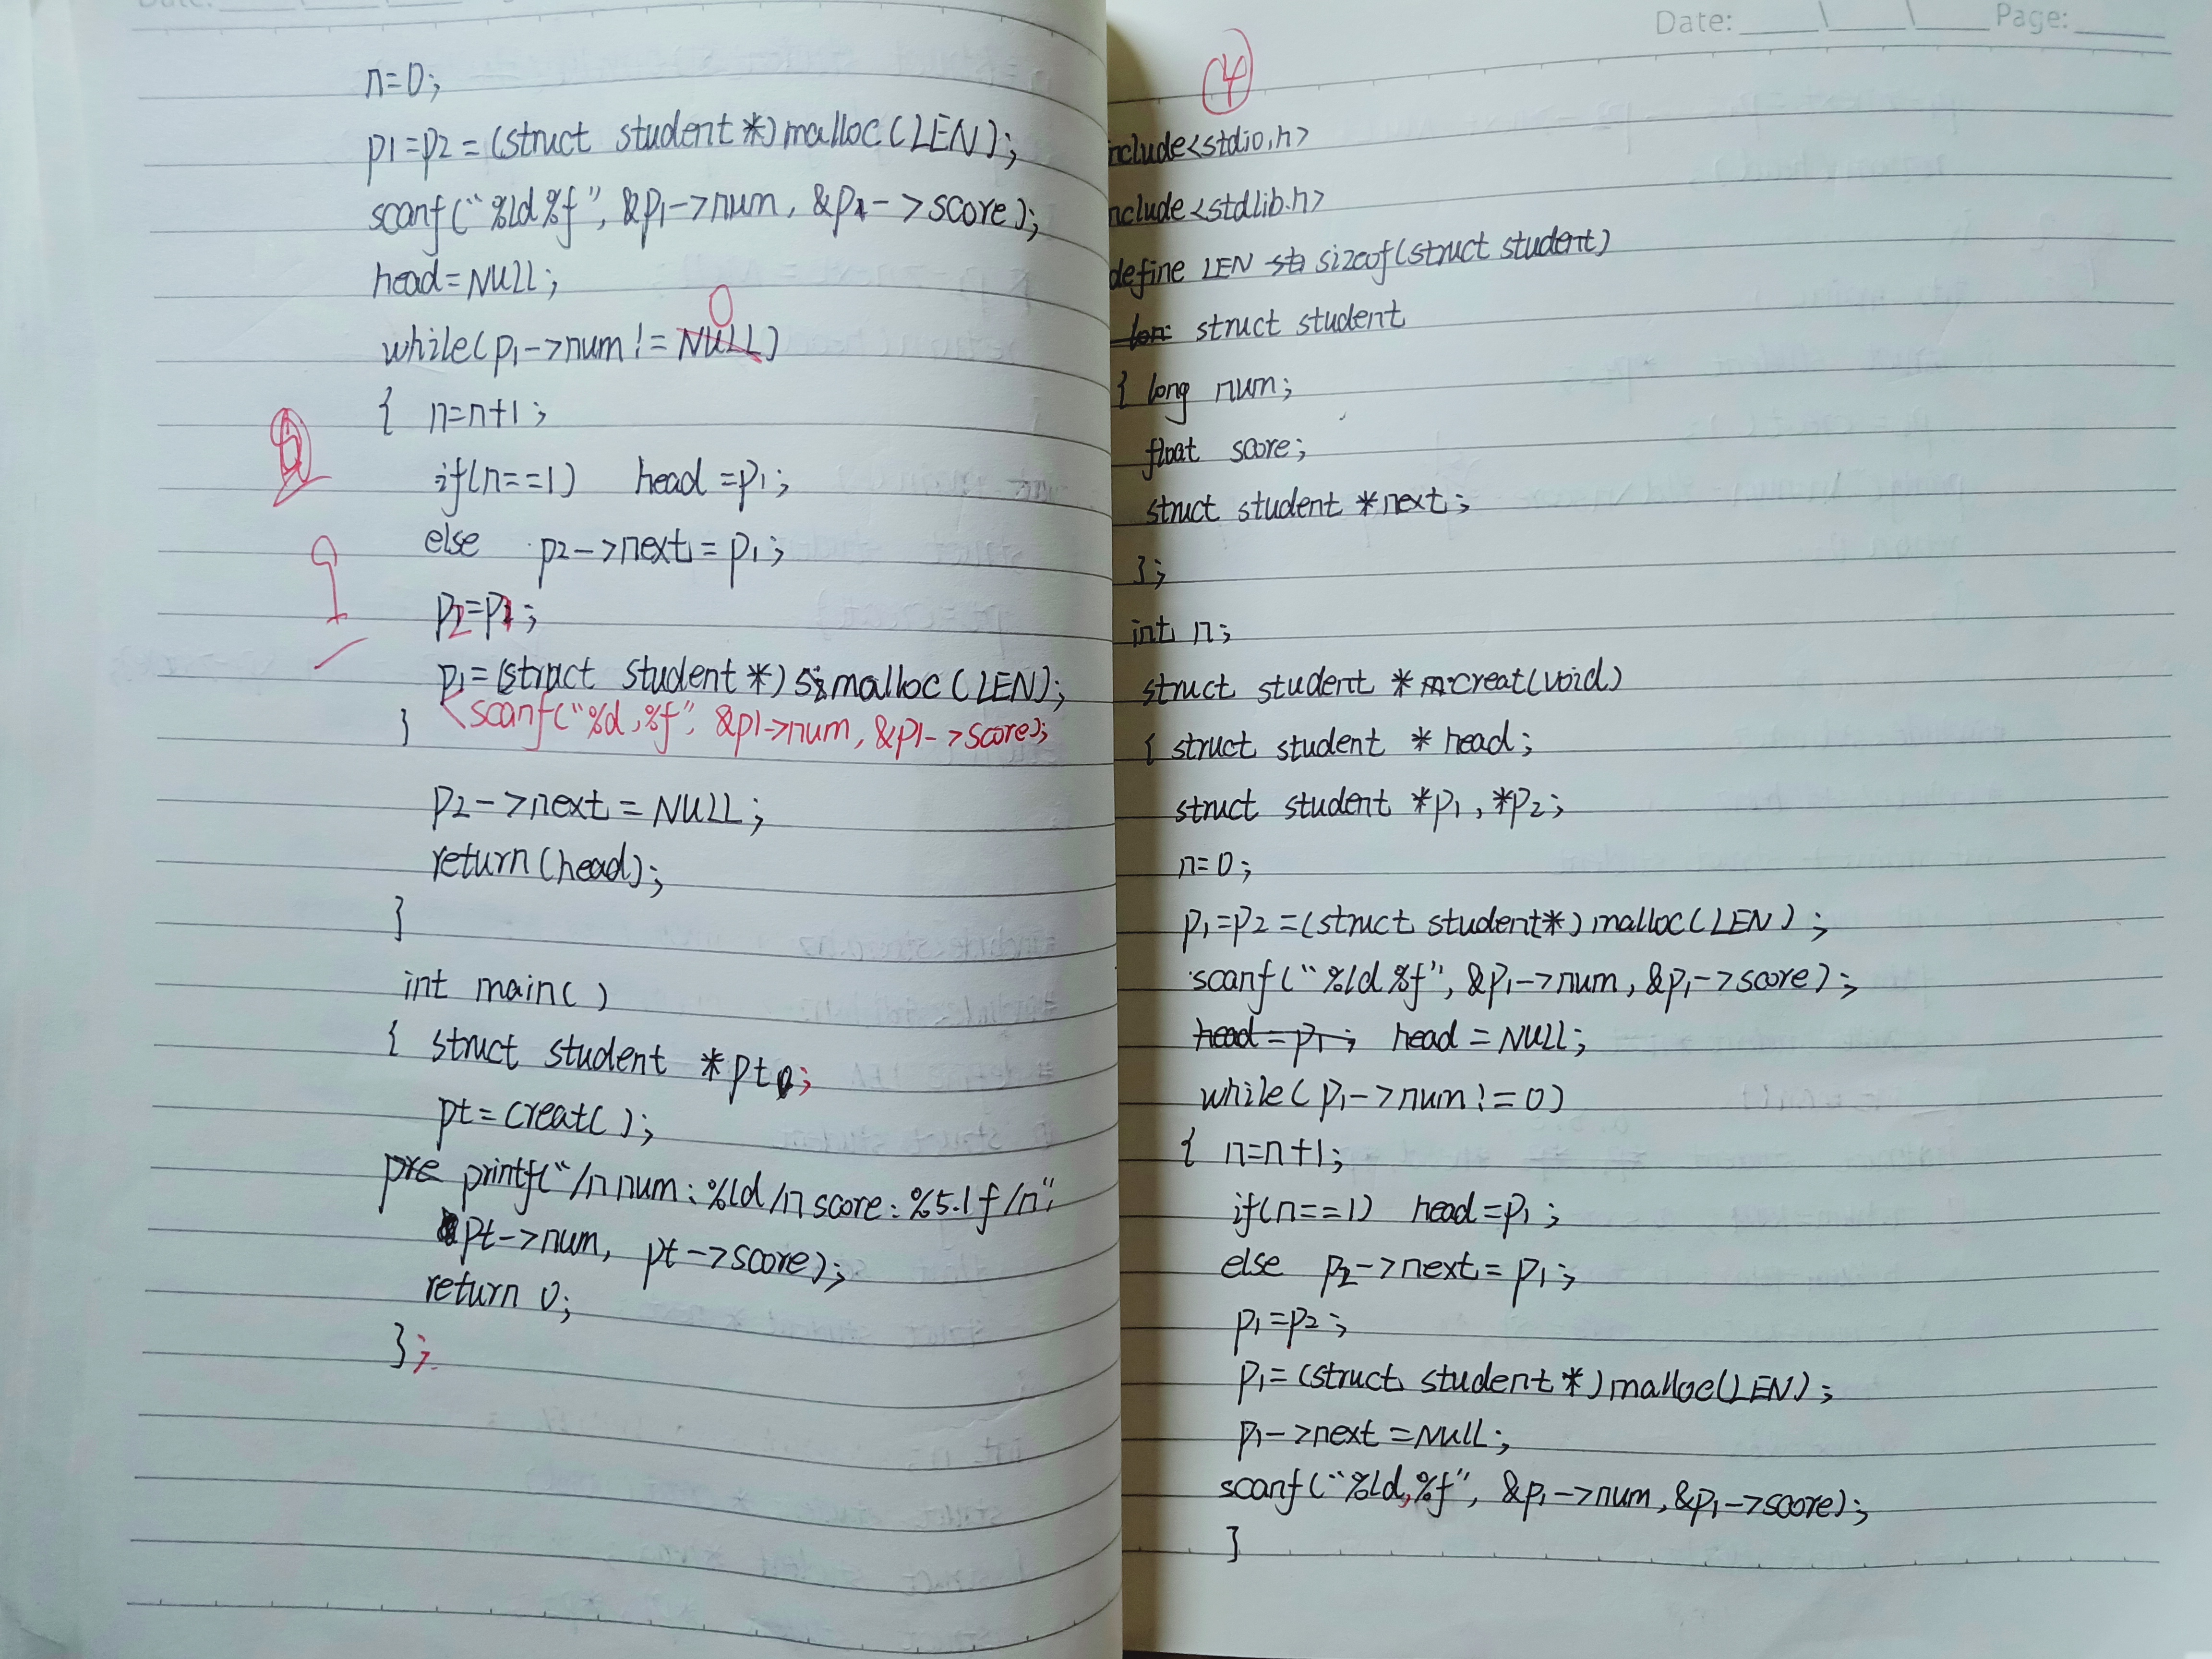 n=0;
p1=p2=(struct student*)malloc(LEN);
scanf("%ld%f", &p1->num, &p1->score);
head=NULL;
0
while(p1->num!=NULL)
{ n=n+1;
if(n==1) head=p1;
else p2->next=p1;
p2=p1;
p1=(struct student*)malloc(LEN);
scanf("%d,%f", &p1->num, &p1->score);
}
p2->next=NULL;
return(head);
}
int main()
{ struct student *pt;
pt=creat();
printf("/n num:%ld/n score:%5.1f/n"
pt->num, pt->score);
return 0;
};
Date: Page:
4
nclude<stdio.h>
nclude<stdlib.h>
define LEN sizeof(struct student)
struct student
{ long num;
float score;
struct student *next;
};
int n;
struct student *creat(void)
{ struct student *head;
struct student *p1,*p2;
n=0;
p1=p2=(struct student*)malloc(LEN);
scanf("%ld%f", &p1->num, &p1->score);
head=p1; head=NULL;
while(p1->num!=0)
{ n=n+1;
if(n==1) head=p1;
else p2->next=p1;
p1=p2;
p1=(struct student*)malloc(LEN);
p1->next=NULL;
scanf("%ld,%f", &p1->num,&p1->score);
}